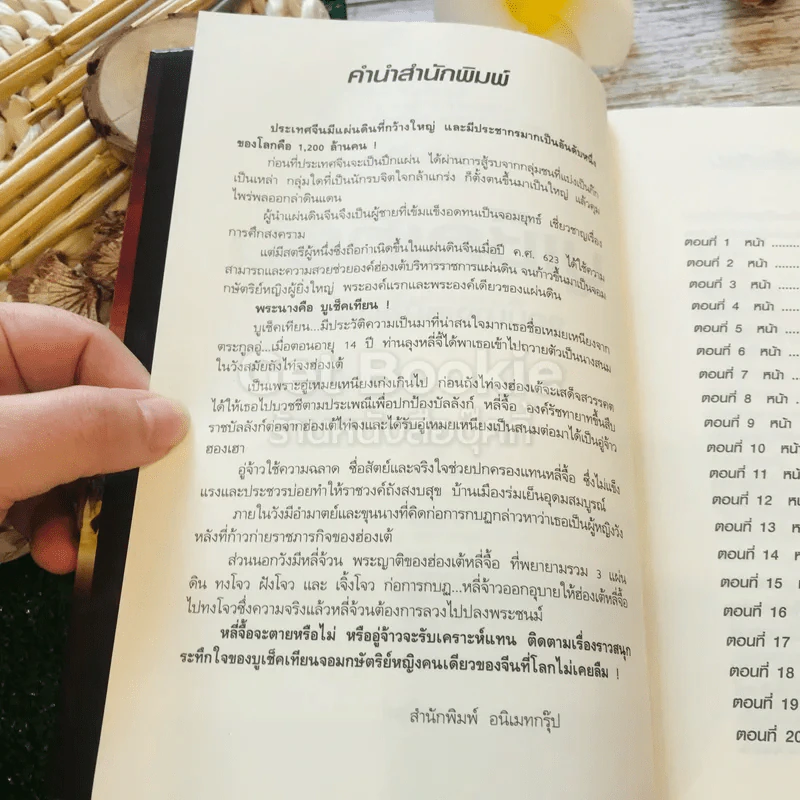 คำนำสำนักพิมพ์
ประเทศจีนมีแผ่นดินที่กว้างใหญ่ และมีประชากรมากเป็นอันดับหนึ่ง
ของโลกคือ 1,200 ล้านคน !
ก่อนที่ประเทศจีนจะเป็นปึกแผ่น ได้ผ่านการสู้รบจากกลุ่มชนที่แบ่งเป็นก๊ก
เป็นเหล่า กลุ่มใดที่เป็นนักรบจิตใจกล้าแกร่ง ก็ตั้งตนขึ้นมาเป็นใหญ่ แล้วคุม
ไพร่พลออกล่าดินแดน
ผู้นำแผ่นดินจีนจึงเป็นผู้ชายที่เข้มแข็งอดทนเป็นจอมยุทธ์ เชี่ยวชาญเรื่อง
การศึกสงคราม
แต่มีสตรีผู้หนึ่งซึ่งถือกำเนิดขึ้นในแผ่นดินจีนเมื่อปี ค.ศ. 623 ได้ใช้ความ
สามารถและความสวยช่วยองค์ฮ่องเต้บริหารราชการแผ่นดิน จนก้าวขึ้นมาเป็นจอม
กษัตริย์หญิงผู้ยิ่งใหญ่ พระองค์แรกและพระองค์เดียวของแผ่นดิน
พระนางคือ บูเช็คเทียน !
บูเช็คเทียน...มีประวัติความเป็นมาที่น่าสนใจมากเธอชื่อเหมยเหนียงจาก
ตระกูลอู่...เมื่อตอนอายุ 14 ปี ท่านลุงหลี่จี้ได้พาเธอเข้าไปถวายตัวเป็นนางสนม
ในวังสมัยถังไท่จงฮ่องเต้
เป็นเพราะอู่เหมยเหนียงเก่งเกินไป ก่อนถังไท่จงฮ่องเต้จะเสด็จสวรรคต
ได้ให้เธอไปบวชชีตามประเพณีเพื่อปกป้องบัลลังก์ หลี่จื้อ องค์รัชทายาทขึ้นสืบ
ราชบัลลังก์ต่อจากฮ่องเต้ไท่จงและได้รับอู่เหมยเหนียงเป็นสนมต่อมาได้เป็นอู่จ้าว
ฮองเฮา
อู่จ้าวใช้ความฉลาด ซื่อสัตย์และจริงใจช่วยปกครองแทนหลี่จื้อ ซึ่งไม่แข็ง
แรงและประชวรบ่อยทำให้ราชวงค์ถังสงบสุข บ้านเมืองร่มเย็นอุดมสมบูรณ์
ภายในวังมีอำมาตย์และขุนนางที่คิดก่อการกบฏกล่าวหาว่าเธอเป็นผู้หญิงวัง
หลังที่ก้าวก่ายราชภารกิจของฮ่องเต้
ส่วนนอกวังมีหลี่จ้วน พระญาติของฮ่องเต้หลี่จื้อ ที่พยายามรวม 3 แผ่น
ดิน ทงโจว ฝังโจว และ เจิ้งโจว ก่อการกบฏ...หลี่จ้าวออกอุบายให้ฮ่องเต้หลี่จื้อ
ไปทงโจวซึ่งความจริงแล้วหลี่จ้วนต้องการลวงไปปลงพระชนม์
หลี่จื้อจะตายหรือไม่ หรืออู่จ้าวจะรับเคราะห์แทน ติดตามเรื่องราวสนุก
ระทึกใจของบูเช็คเทียนจอมกษัตริย์หญิงคนเดียวของจีนที่โลกไม่เคยลืม !
สำนักพิมพ์ อนิเมทกรุ๊ป
ตอนที่ 1 หน้า
ตอนที่ 2 หน้า
ตอนที่ 3 หน้า
ตอนที่ 4 หน้า
ตอนที่ 5 หน้า
ตอนที่ 6 หน้า
ตอนที่ 7 หน้า
ตอนที่ 8 หน้า
ตอนที่ 9 หน้า
ตอนที่ 10 หน้า
ตอนที่ 11 หน้า
ตอนที่ 12 หน้า
ตอนที่ 13 หน้า
ตอนที่ 14
ตอนที่ 15
ตอนที่ 16
ตอนที่ 17
ตอนที่ 18
ตอนที่ 19
ตอนที่ 20